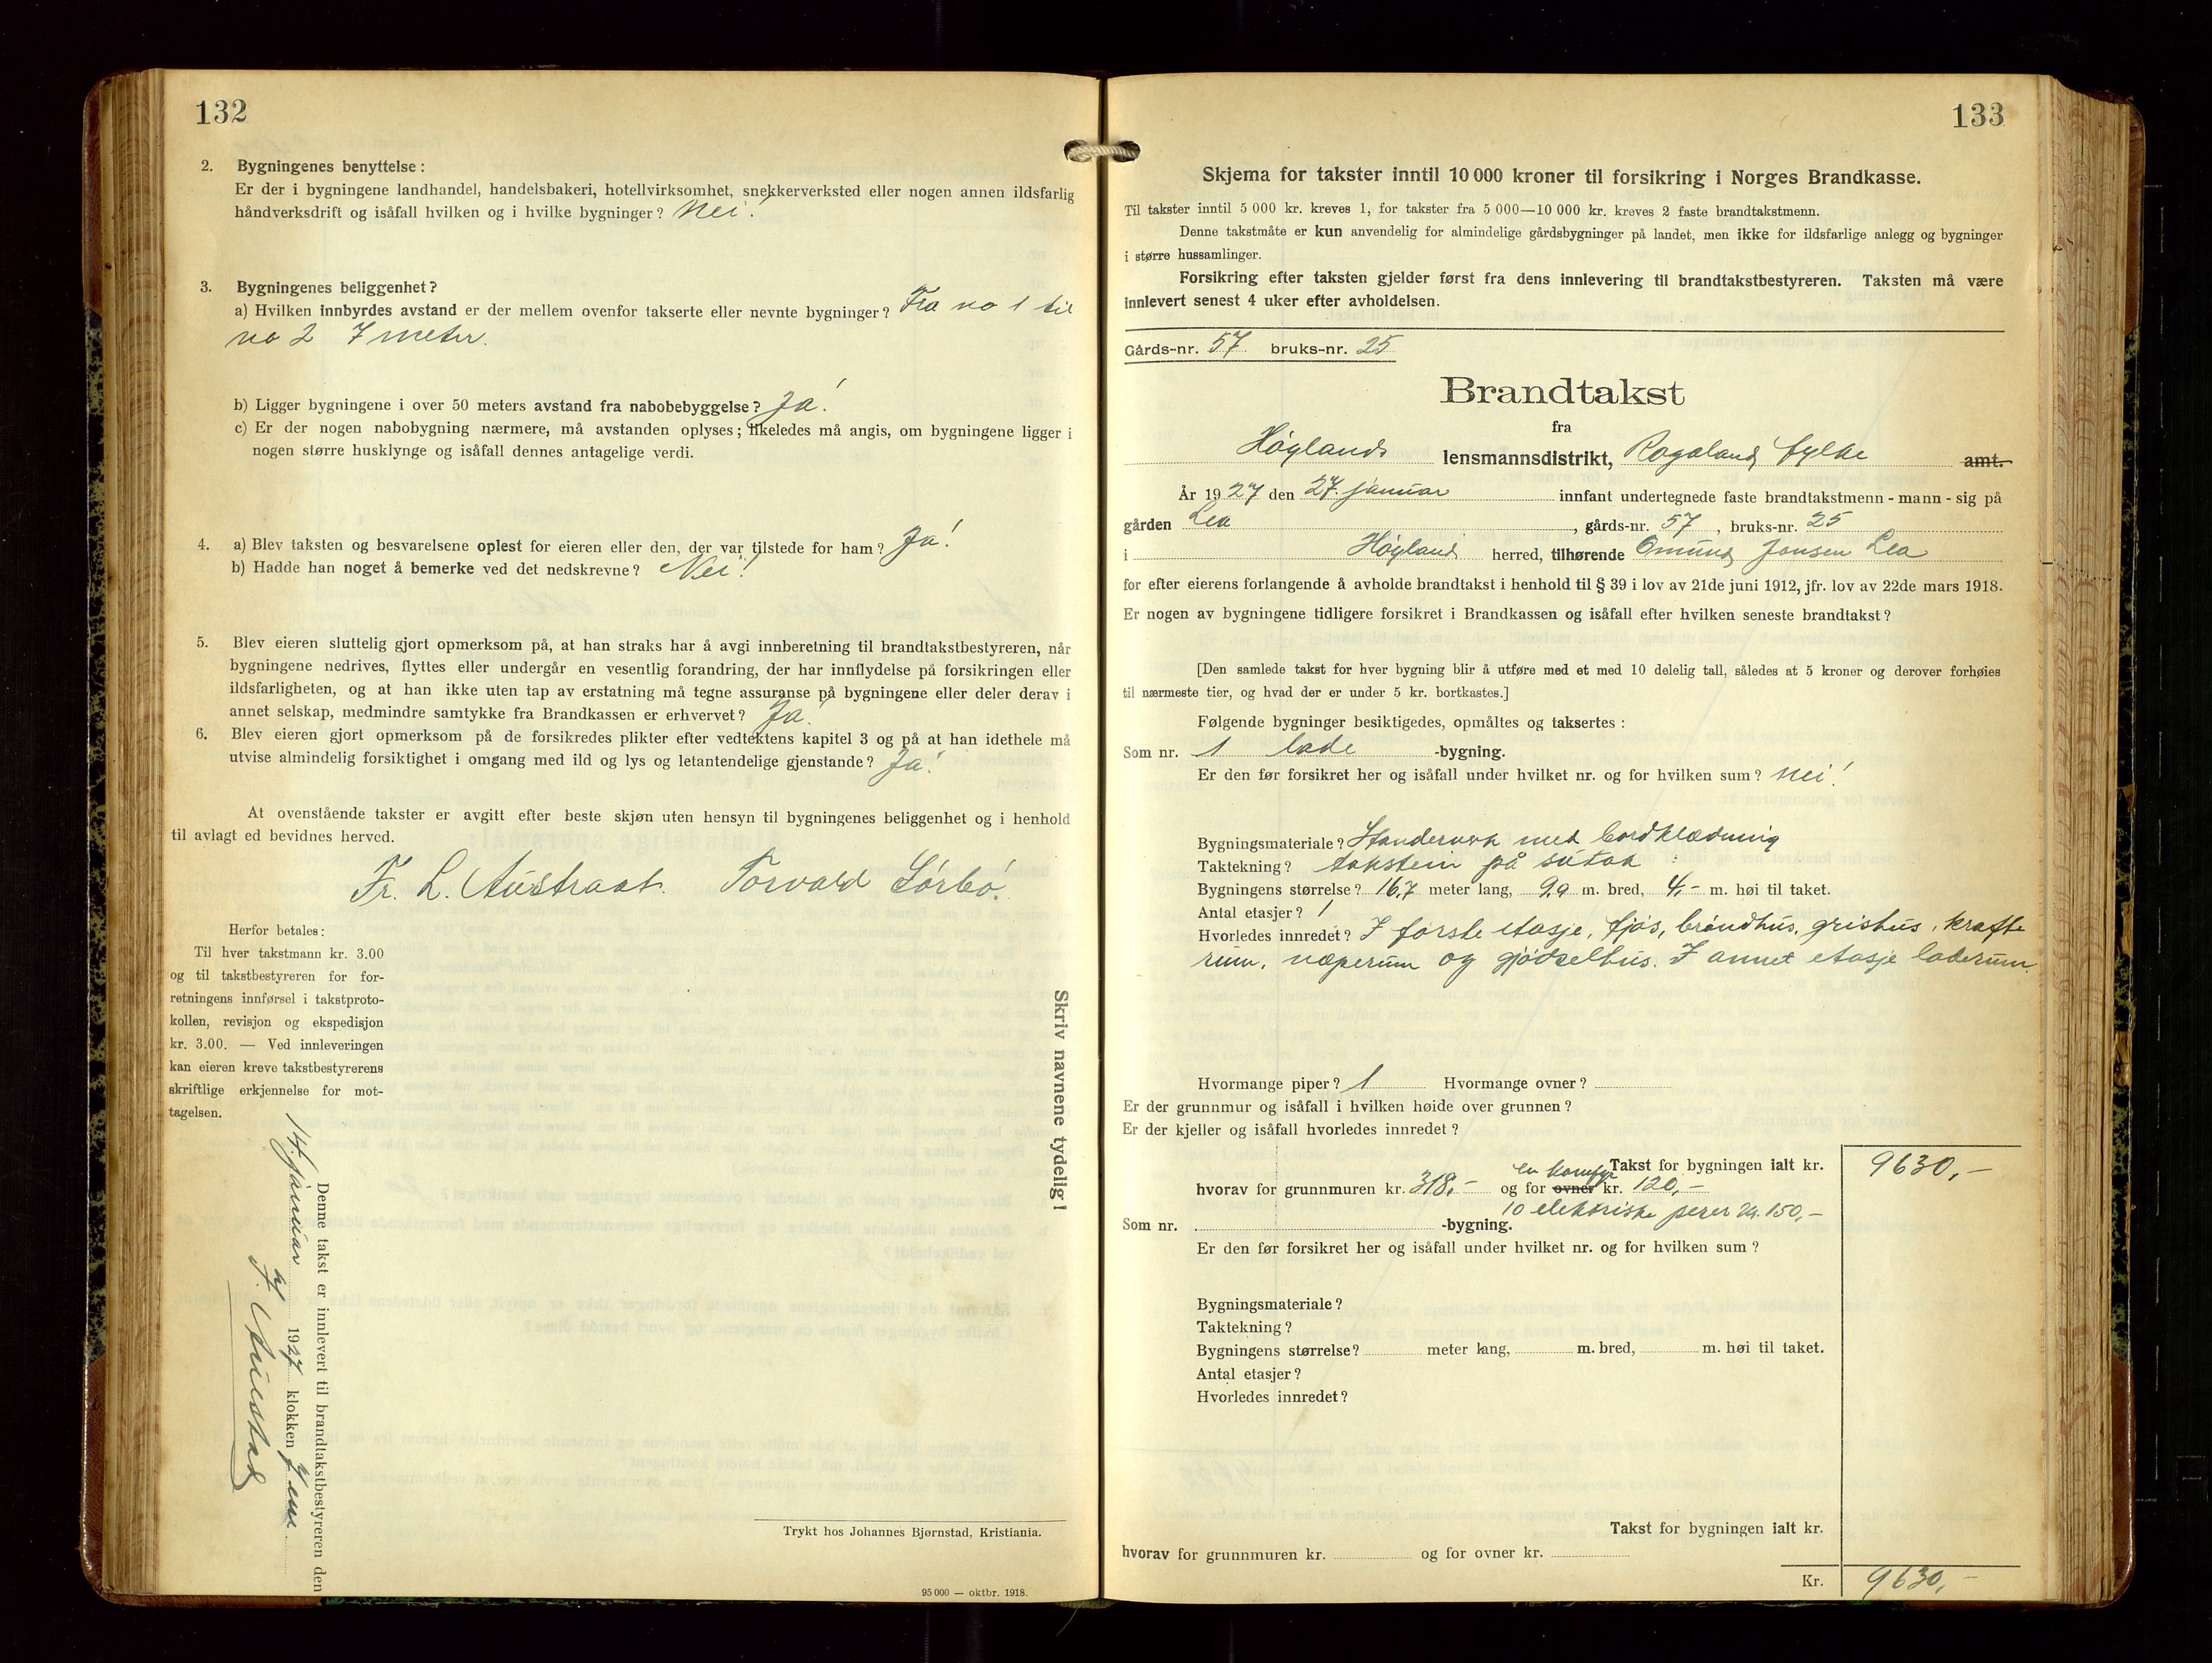 132
2. Bygningenes benyttelse:
Er der i bygningene landhandel, handelsbakeri, hotellvirksomhet, snekkerverksted eller nogen annen ildsfarlig
håndverksdrift og isåfall hvilken og i hvilke bygninger? Nei!
3. Bygningenes beliggenhet?
a) Hvilken innbyrdes avstand er der mellem ovenfor takserte eller nevnte bygninger? Fra no 1 til
no 2 7 meter.
b) Ligger bygningene i over 50 meters avstand fra nabobebyggelse? Ja!
c) Er der nogen nabobygning nærmere, må avstanden oplyses; likeledes må angis, om bygningene ligger i
nogen større husklynge og isåfall dennes antagelige verdi.
4. a) Blev taksten og besvarelsene oplest for eieren eller den, der var tilstede for ham? Ja!
b) Hadde han noget å bemerke ved det nedskrevne? Nei!
5. Blev eieren sluttelig gjort opmerksom på, at han straks har å avgi innberetning til brandtakstbestyreren, når
bygningene nedrives, flyttes eller undergår en vesentlig forandring, der har innflydelse på forsikringen eller
ildsfarligheten, og at han ikke uten tap av erstatning må tegne assuranse på bygningene eller deler derav i
annet selskap, medmindre samtykke fra Brandkassen er erhvervet? Ja!
6. Blev eieren gjort opmerksom på de forsikredes plikter efter vedtektens kapitel 3 og på at han idethele må
utvise almindelig forsiktighet i omgang med ild og lys og letantendelige gjenstande? Ja!
At ovenstående takster er avgitt efter beste skjøn uten hensyn til bygningenes beliggenhet og i henhold
til avlagt ed bevidnes herved.
Fr. L. Austraat. Torvald Sørbø.
Herfor betales:
Til hver takstmann kr. 3.00
og til takstbestyreren for for-
retningens innførsel i takstproto-
kollen, revisjon og ekspedisjon
kr. 3.00. — Ved innleveringen
kan eieren kreve takstbestyrerens
skriftlige erkjennelse for mot-
tagelsen.
Denne takst er innlevert til brandtakstbestyreren den
14. januar 1927 klokken 7 em
Skriv navnene tydelig!
Trykt hos Johannes Bjørnstad, Kristiania.
95 000 — oktbr. 1918.
133
Skjema for takster inntil 10 000 kroner til forsikring i Norges Brandkasse.
Til takster inntil 5 000 kr. kreves 1, for takster fra 5 000—10 000 kr. kreves 2 faste brandtakstmenn.
Denne takstmåte er kun anvendelig for almindelige gårdsbygninger på landet, men ikke for ildsfarlige anlegg og bygninger
i større hussamlinger.
Forsikring efter taksten gjelder først fra dens innlevering til brandtakstbestyreren. Taksten må være
innlevert senest 4 uker efter avholdelsen.
Gårds-nr. 57 bruks-nr. 25
Brandtakst
fra
Høylands lensmannsdistrikt, Rogaland fylke amt.
År 1927 den 27. januar innfant undertegnede faste brandtakstmenn - mann - sig på
gården Lea, gårds-nr. 57, bruks-nr. 25
i Høyland herred, tilhørende Omund Jonsen Lea
for efter eierens forlangende å avholde brandtakst i henhold til § 39 i lov av 21de juni 1912, jfr. lov av 22de mars 1918.
Er nogen av bygningene tidligere forsikret i Brandkassen og isåfall efter hvilken seneste brandtakst?
[Den samlede takst for hver bygning blir å utføre med et med 10 delelig tall, således at 5 kroner og derover forhøies
til nærmeste tier, og hvad der er under 5 kr. bortkastes.]
Følgende bygninger besiktigedes, opmåltes og taksertes:
Som nr. 1 lade -bygning.
Er den før forsikret her og isåfall under hvilket nr. og for hvilken sum? Nei!
Bygningsmateriale? Standerverk med bordklædning
Taktekning? takstein på sutak
Bygningens størrelse? 16,7 meter lang, 9,9 m. bred, 4,- m. høi til taket.
Antal etasjer? 1
Hvorledes innredet? I første etasje, fjøs, brøndhus, grishus, krafte
rum, næperum og gjødselhus. I annet etasje laderum
Hvormange piper? 1 Hvormange ovner?
Er der grunnmur og isåfall i hvilken høide over grunnen?
Er der kjeller og isåfall hvorledes innredet?
Takst for bygningen ialt kr. 9630,-
en komfyr
hvorav for grunnmuren kr. 318,- og for ovner kr. 120,-
10 elektriske perer kr. 150,-
Som nr. -bygning.
Er den før forsikret her og isåfall under hvilket nr. og for hvilken sum?
Bygningsmateriale?
Taktekning?
Bygningens størrelse? meter lang, m. bred, m. høi til taket.
Antal etasjer?
Hvorledes innredet?
Takst for bygningen ialt kr.
hvorav for grunnmuren kr. og for ovner kr.
Kr. 9630,-